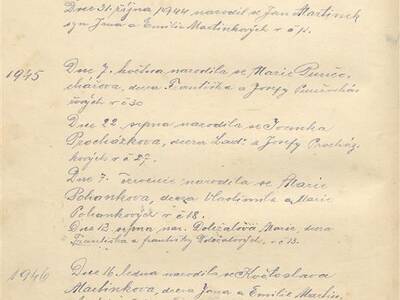 Dne 31. října 1944 narodil se Jan Martinek
syn Jana a Emilie Martinkových v č 11.
1945
Dne 7. května narodila se Marie Punčo-
chářova, dcera Františka a Josefy Punčochář
ových v č 30
Dne 22. srpna narodila se Ivanka
Procházkova, dcera Lad. a Josefy Procház-
kových v č 27.
Dne 7. července narodila se Marie
Pohankova, dcera Vlastimila a Marie
Pohankových v č 18.
Dne 13. srpna nar. Doležalova Marie, dcera
Františka a Františky Doležalových, v č. 13.
1946
Dne 16. ledna narodila se Květoslava
Martinkova, dcera Jana a Emilie Martin